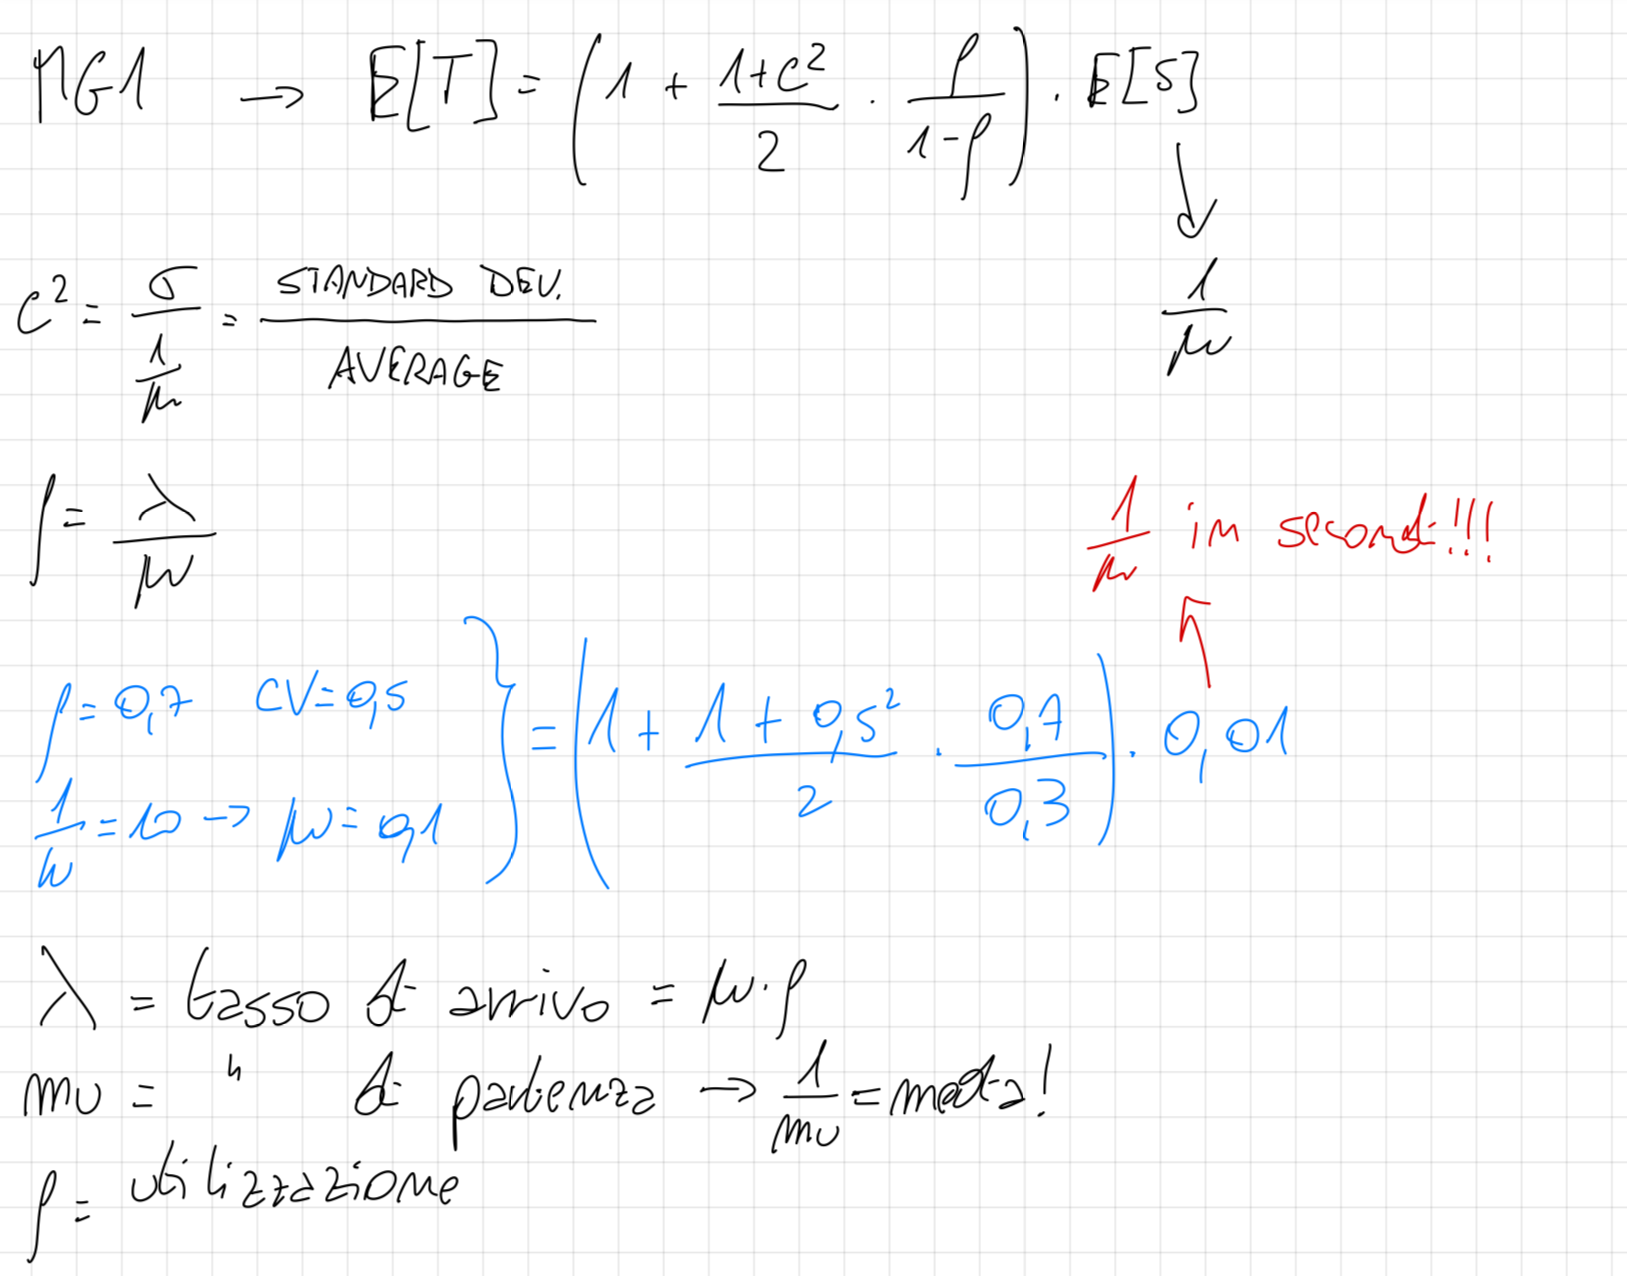 MG1 → E[T] = (1 + (1+C²)/2 · ρ/(1-ρ)) · E[S]
↓
1/μ
C² = σ/(1/μ) = STANDARD DEV./AVERAGE
ρ = λ/μ
1/μ in secondi!!!
ρ = 0,7 CV = 0,5
1/μ = 10 → μ = 0,1
} = (1 + (1 + 0,5²)/2 · 0,7/0,3) · 0,01
λ = tasso di arrivo = μ · ρ
mu = " di partenza → 1/mu = media!
ρ = utilizzazione